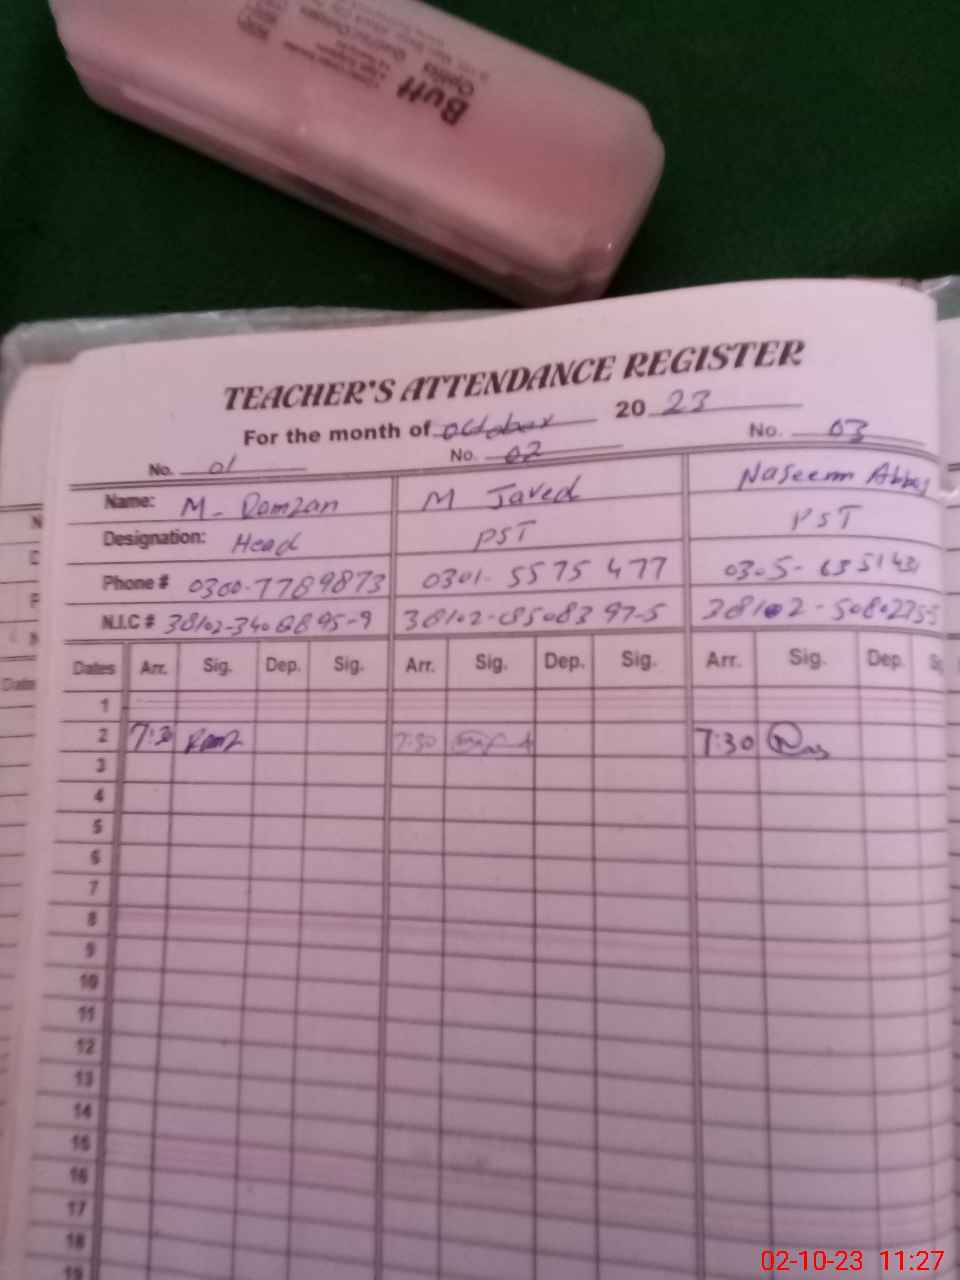 Butt
Optics
TEACHER'S ATTENDANCE REGISTER
For the month of October 20 23
No. 01 No. 02 No. 03
Name: M. Ramzan M Javed Naseem Abbas
Designation: Head PST PST
Phone # 0300-7789873 0301-5575477
N.I.C #
Dates Arr. Sig. Dep. Sig. Arr. Sig. Dep. Sig. Arr. Sig. Dep.
1
2 7:30 Ramz 7:30 7:30
3
4
5
6
7
8
9
10
11
12
13
14
15
16
17
18
19
02-10-23 11:27